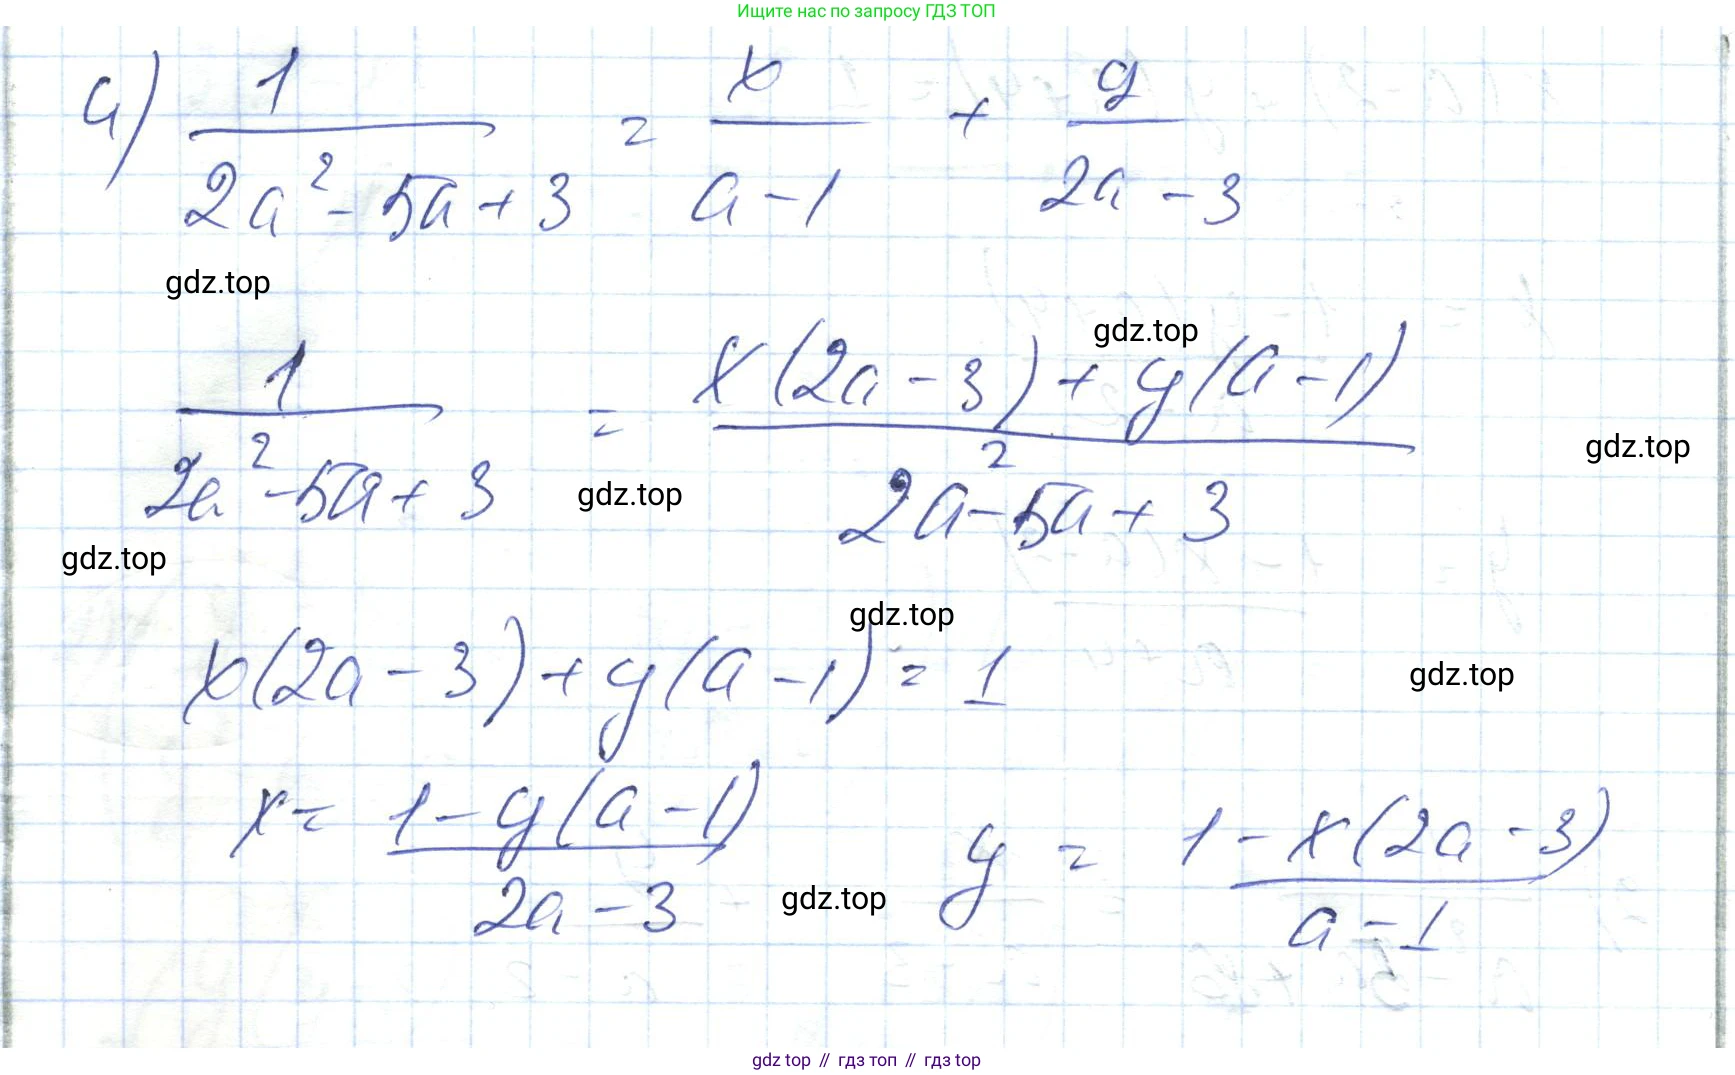 Ищите нас по запросу ГДЗ ТОП
а) 1/(2a² - 5a + 3) = x/(a - 1) + y/(2a - 3)
gdz.top
gdz.top
1/(2a² - 5a + 3) = (x(2a - 3) + y(a - 1))/(2a² - 5a + 3)
gdz.top
gdz.top
gdz.top
gdz.top
x(2a - 3) + y(a - 1) = 1
gdz.top
x = (1 - y(a - 1))/(2a - 3) y = (1 - x(2a - 3))/(a - 1)
gdz.top
gdz top // гдз топ // gdz top